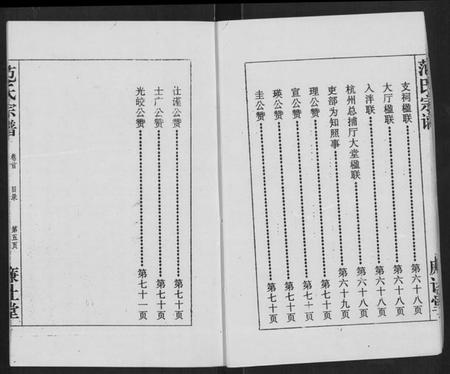 范氏宗谱
支祠楹联………第六十八页
大厅楹联………第六十八页
入泮联………第六十八页
杭州总捕厅大堂楹联………第六十九页
吏部为知照事………第六十九页
理公赞………第七十页
宣公赞………第七十页
瑛公赞………第七十页
圭公赞………第七十页
仕谨公赞………第七十页
士广公赞………第七十页
光皎公赞………第七十一页
范氏宗谱
卷首
目录
第五页